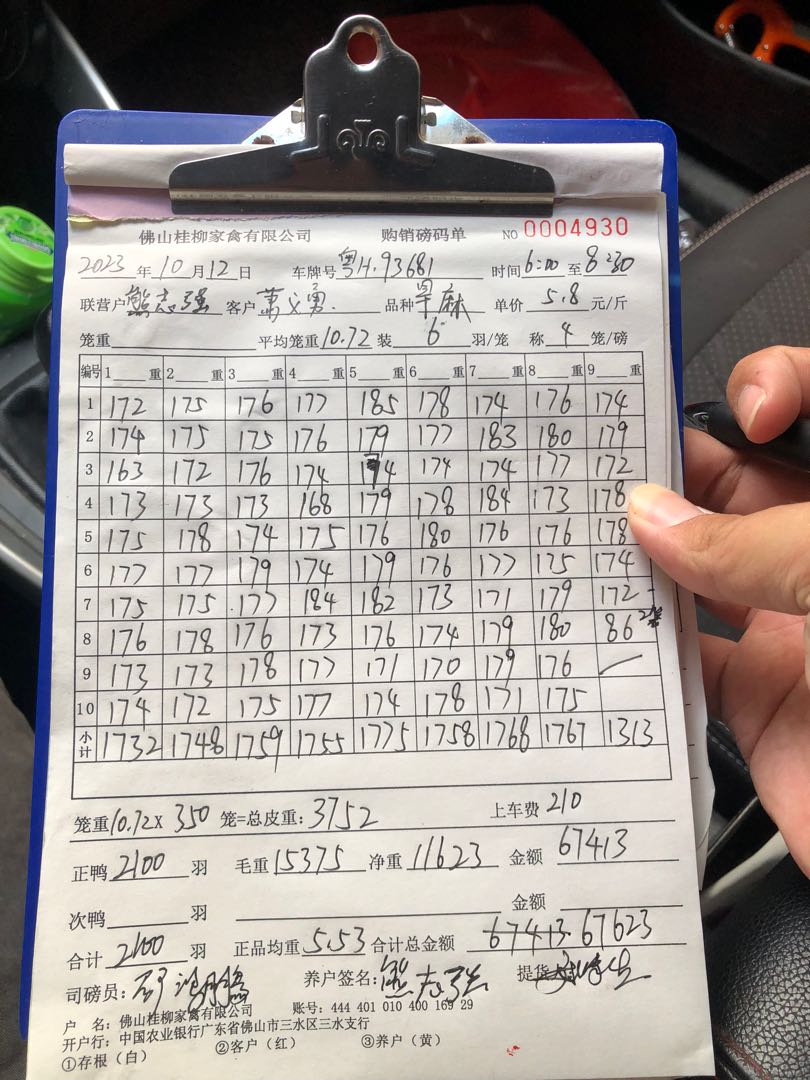 佛山桂柳家禽有限公司 购销磅码单 NO 0004930
2023 年 10 月 12 日 车牌号 粤H.93681 时间 6:00 至 8:30
联营户 熊志强 客户 萧 勇 品种 麻 单价 5.8 元/斤
笼重 平均笼重 10.72 装 6 羽/笼 称 4 笼/磅
编号 1 重 2 重 3 重 4 重 5 重 6 重 7 重 8 重 9 重
1 172 175 176 177 185 178 174 176 174
2 174 175 175 176 179 177 183 180 179
3 163 172 176 174 174 174 174 177 172
4 173 173 173 168 179 178 184 173 178
5 175 178 174 175 176 180 176 176 178
6 177 177 179 174 179 176 177 175 174
7 175 175 177 184 182 173 171 179 172
8 176 178 176 173 176 174 179 180 86 2笼
9 173 173 178 177 171 170 179 176
10 174 172 175 177 174 178 171 175
小计 1732 1748 1759 1755 1775 1758 1768 1767 1313
笼重 10.72 X 350 笼=总皮重: 3752 上车费 210
正鸭 2100 羽 毛重 15375 净重 11623 金额 67413
次鸭 羽 金额
合计 2100 羽 正品均重 5.53 合计总金额 67413 67623
司磅员: 养户签名: 熊志强 提货
户 名: 佛山桂柳家禽有限公司 账号: 444 401 010 400 169 29
开户行: 中国农业银行广东省佛山市三水区三水支行
①存根（白） ②客户（红） ③养户（黄）